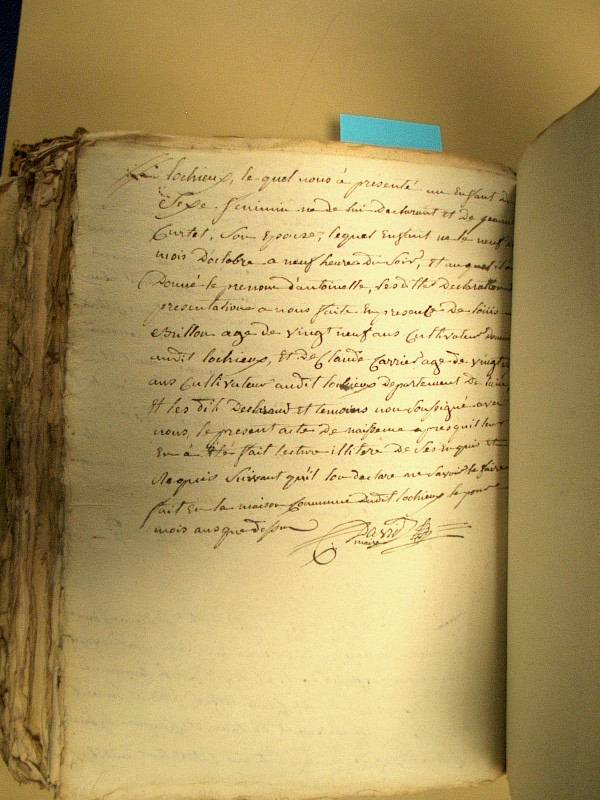 lochieux, le quel nous à presenté un Enfant de
Sexe feminin né de lui Declarant et de jeanne
Curtet, Son Epouse, lequel Enfant né le neuf du
mois D'octobre a neuf heure Du Soir, Et auquel il a
Donné le prenom d'antoinette, les dittes Declaration
presentation a nous faite En presence De Loüis
Brillon agé de vingt neuf ans Cultivateur
audit lochieux, Et de Claude Carrier agé de vingt
ans Cultivateur audit lochieux departement De l'ain
Et les dits Declarant et temoins non Soussigné avec
nous, le present acte de naissance apres qu'il leur
En à Été fait lecture illiteré De Ses Enquis et
Requis Suivant qu'il l'on declare ne Savoir le faire
fait En la maison Commune dudit lochieux le jour
mois ans que dessus
David
maire